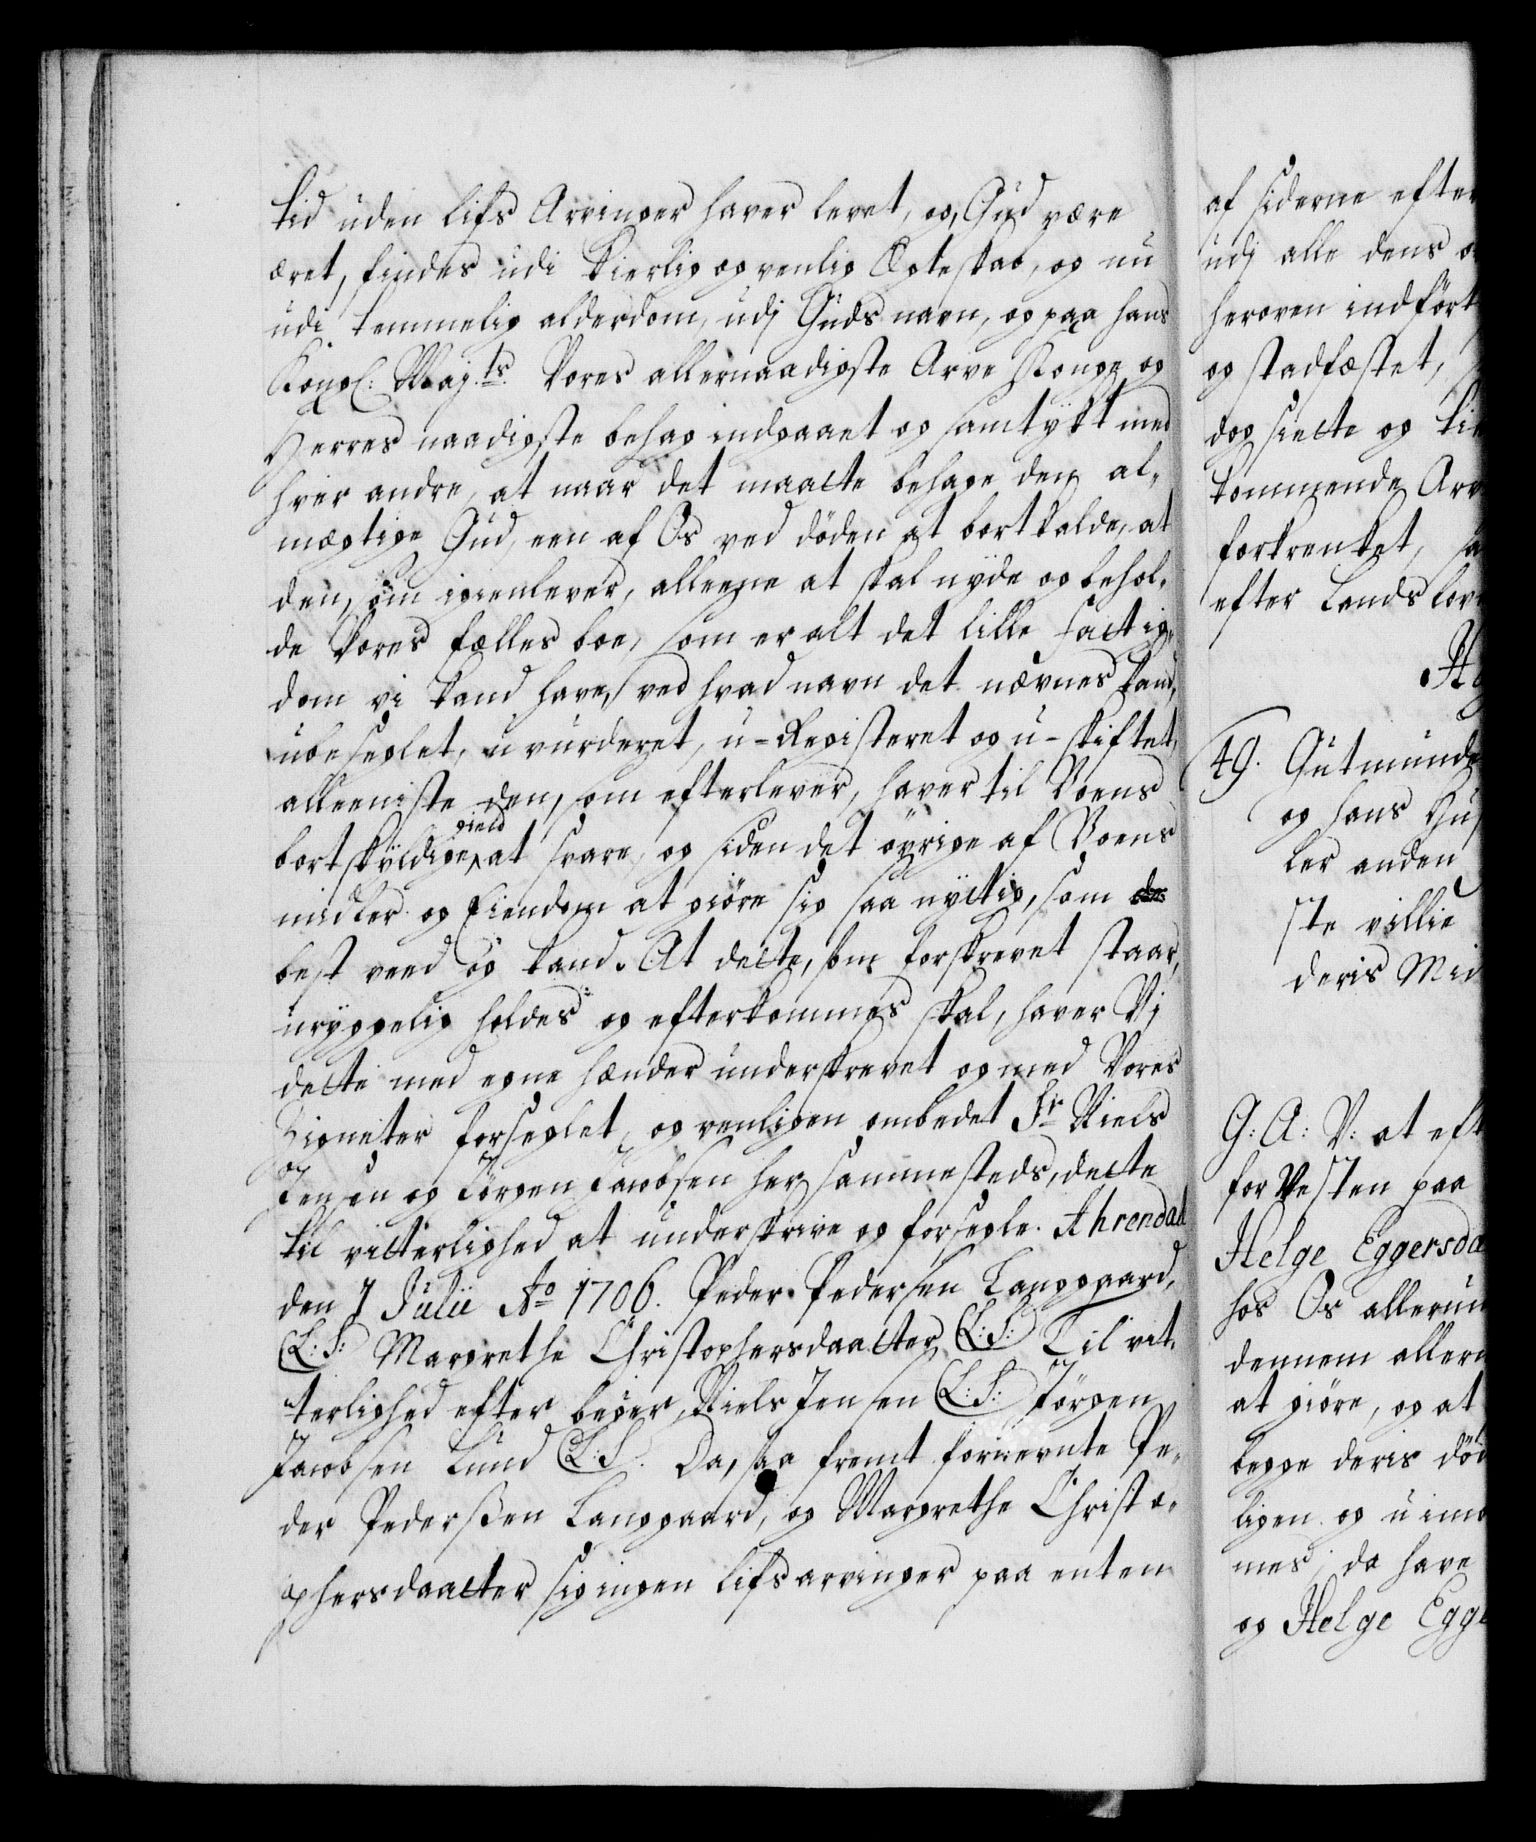 tid uden lifs Arvinger haver levet, og, Gud være
æret, findes udi kierlig og venlig Ægteskab, og nu
udi temmelig alderdom, udj Guds navn, og paa hans
Kongl: Maj:ts Vores allernaadigste Arve Konge og
Herres naadigste behag indgaaet og samtykt med
hver andre, at naar det maatte behage den al-
mægtige Gud, een af Os ved döden at bortkalde, at
den, som igienlever, alleene at skal nyde og behol-
de Vores fælles boe, som er alt det lille fattig-
dom vi kand have, ved hvad navn det nævnes kand,
ubeseglet, uvurderet, u-Registeret og u-skiftet,
alleeniste den, som efterlever, haver til Boens
bortskyldige gield at svare, og siden det övrige af Boens
midler og Eiendom at giöre sig saa nyttig, som
best veed og kand. At dette, som forskrevet staar,
uryggelig holdes og efterkommes skal, haver Vj
dette med egne hænder underskrevet og med Vores
Zigneter forseglet, og venligen ombedet Sr Niels
Jensen og Jörgen Jacobsen her sammesteds, dette
til vitterlighed at underskrive og forsegle. Ahrendal
den 7 Julii Ao 1706. Peder Pedersen Langgaard,
(L:S:) Margrethe Christophersdaatter (L:S:) Til vit-
terlighed efter begier, Niels Jensen (L:S:) Jörgen
Jacobsen Lund (L:S. Da, saa fremt fornevnte Pe-
der Pederßen Langgaard, og Margrethe Christo-
phersdaatter sig ingen lifsarvinger paa enten
af siderne efter
udj alle dens
heroven indfört
og stadfæstet,
dog siette og
kommende Arv
forkrenket,
efter Lands lov
49. Gutmund
og hans Hus
ler anden
ste villie
deris Mid
G: A: V: at eft
for Vesten paa
Helge Eggersda
hos Os allerun
dennem allern
at giöre, og at
begge deris död
ligen og uimo
mes; da have
og Helge Egge